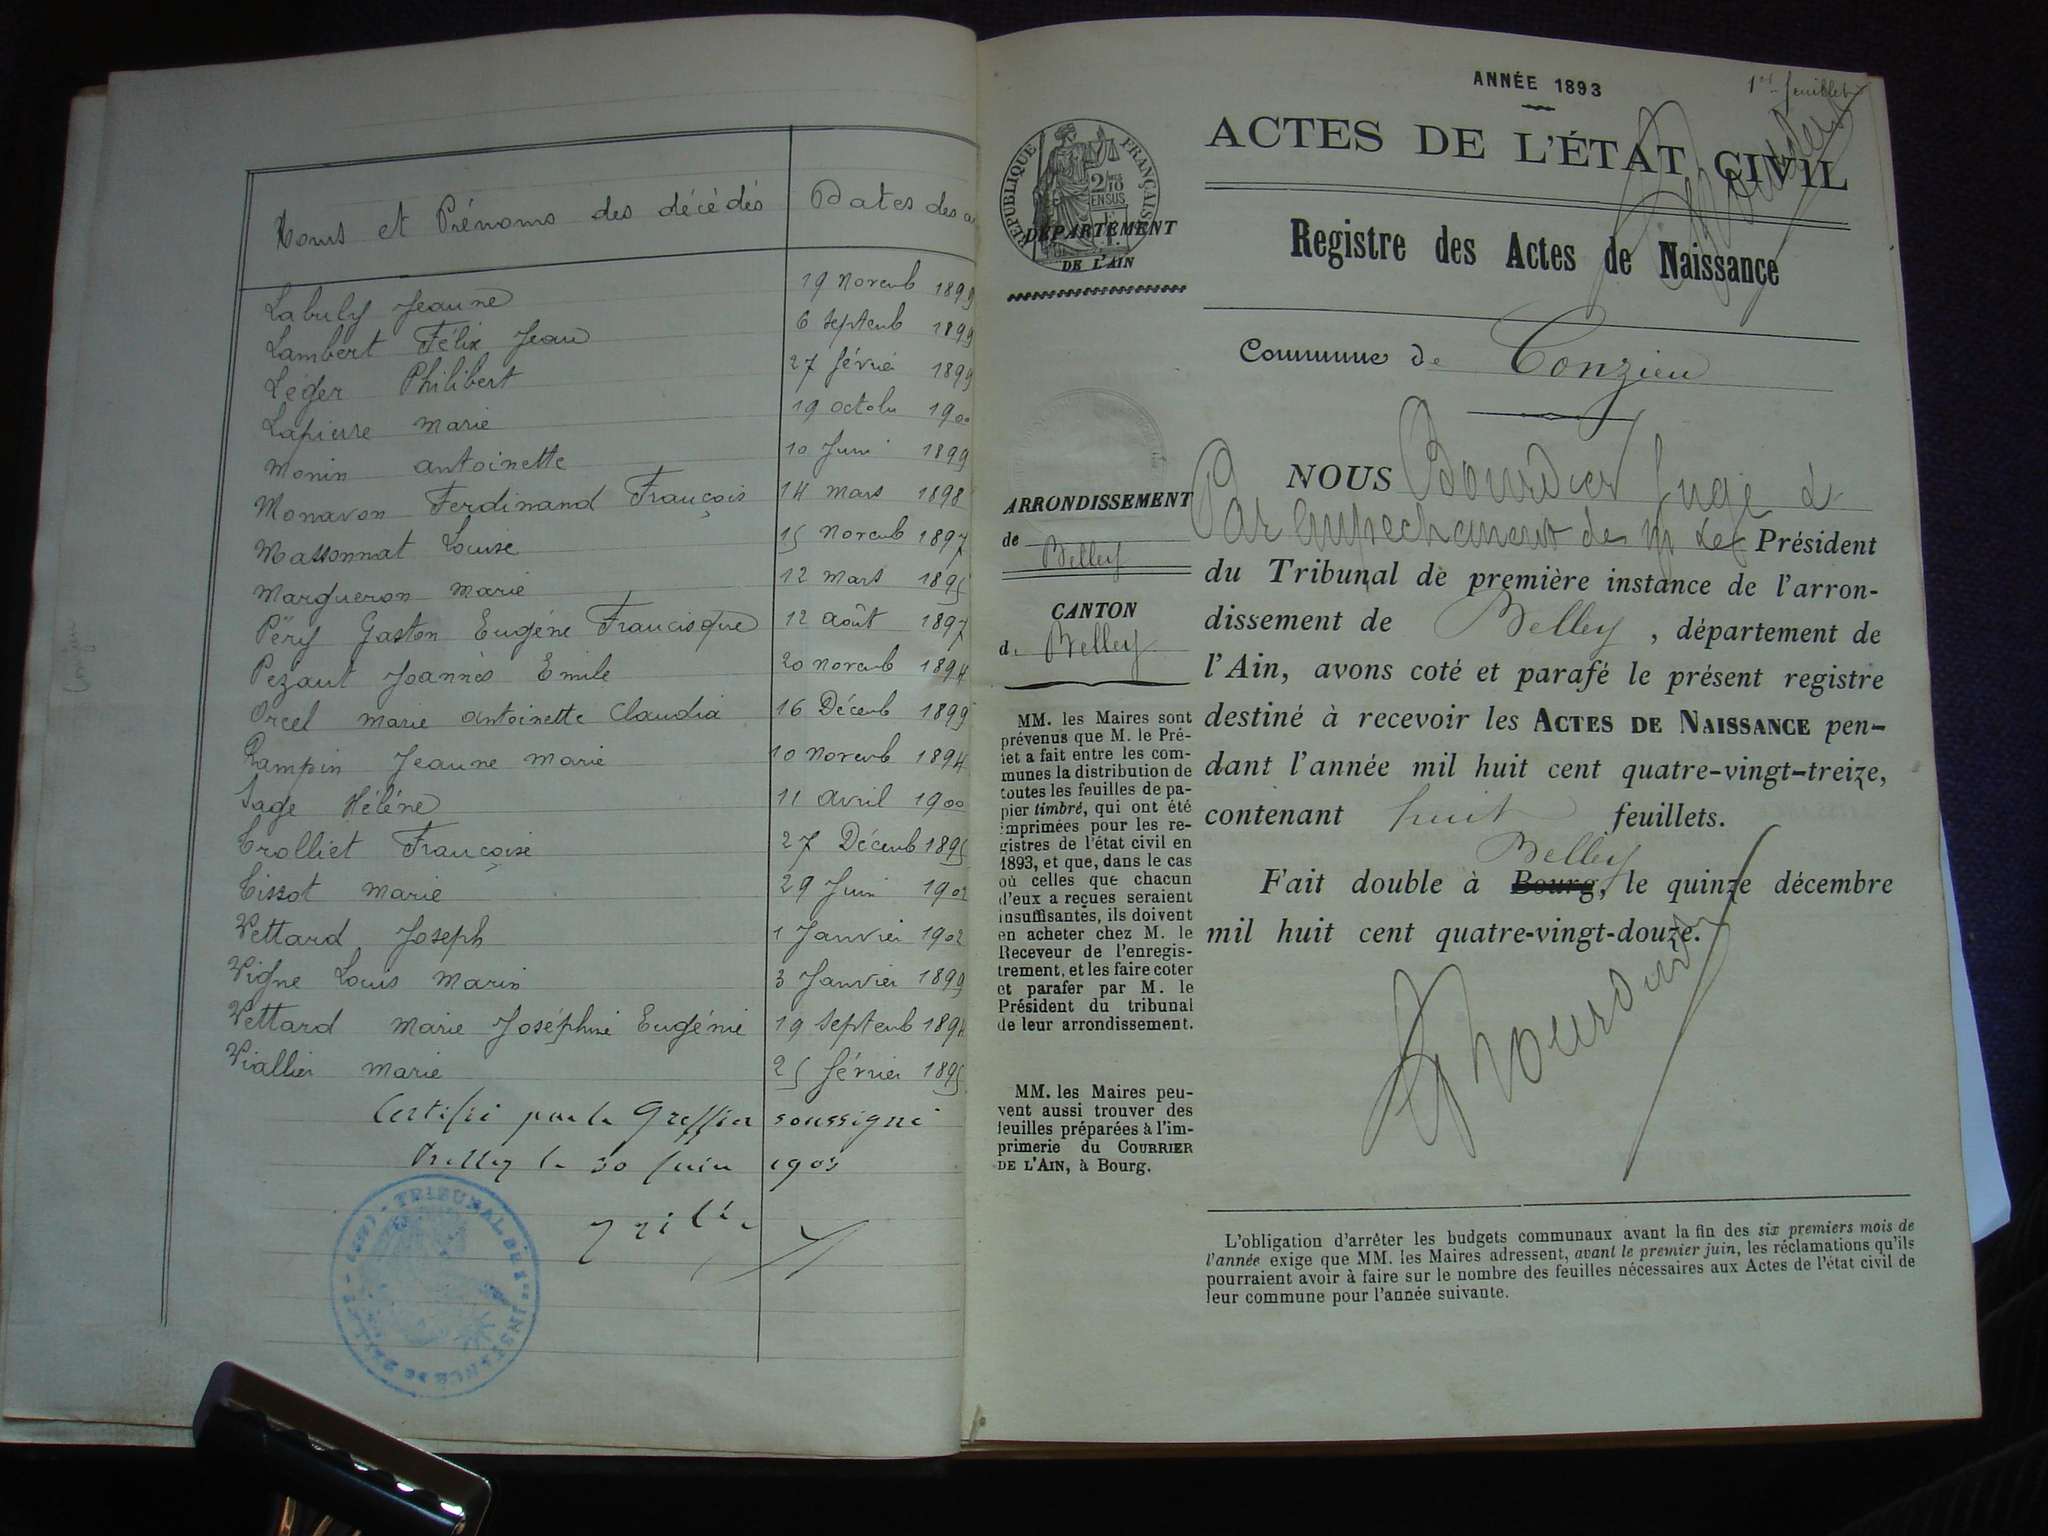 Noms et Prénoms des décédés Dates des a
Labuly Jeanne 19 Novemb 1899
Lambert Félix Jean 6 Septemb 1899
Léger Philibert 27 février 1899
Lapierre Marie 19 octobr 1900
Monin antoinette 10 Juin 1899
Monavon Ferdinand François 14 mars 1898
Massonnat Louise 15 Novemb 1897
Margueron Marie 12 mars 1895
Péry Gaston Eugène Francisque 12 août 1897
Pezant Joannès Emile 20 novemb 1894
Orcel Marie antoinette Claudia 16 Décemb 1899
Rampin Jeanne Marie 10 Novemb 1894
Sage Hélène 11 avril 1900
Trolliet Françoise 27 Décemb 1895
Tissot Marie 29 Juin 1902
Vettard Joseph 1 Janvier 1902
Vigne Louis Marin 3 Janvier 1899
Vettard Marie Joséphine Eugénie 19 Septemb 1894
Viallier Marie 25 février 1895
Certifié par le Greffier soussigné
Belley le 30 Juin 1903
TRIBUNAL DE 1re INSTANCE DE BELLEY (AIN)
ANNÉE 1893
1er feuillet
ACTES DE L'ÉTAT CIVIL
Registre des Actes de Naissance
RÉPUBLIQUE FRANÇAISE
2/10 EN SUS
DÉPARTEMENT
DE L'AIN
Commune de Conzieu
ARRONDISSEMENT
de Belley
CANTON
de Belley
MM. les Maires sont
prévenus que M. le Pré-
fet a fait entre les com-
munes la distribution de
toutes les feuilles de pa-
pier timbré, qui ont été
imprimées pour les re-
gistres de l'état civil en
1893, et que, dans le cas
où celles que chacun
d'eux a reçues seraient
insuffisantes, ils doivent
en acheter chez M. le
Receveur de l'enregis-
trement, et les faire coter
et parafer par M. le
Président du tribunal
de leur arrondissement.
MM. les Maires peu-
vent aussi trouver des
feuilles préparées à l'im-
primerie du COURRIER
DE L'AIN, à Bourg.
NOUS Bourdier Juge
Par empechement de M. Le Président
du Tribunal de première instance de l'arron-
dissement de Belley, département de
l'Ain, avons coté et parafé le présent registre
destiné à recevoir les ACTES DE NAISSANCE pen-
dant l'année mil huit cent quatre-vingt-treize,
contenant huit feuillets.
Belley
Fait double à Bourg, le quinze décembre
mil huit cent quatre-vingt-douze.
L'obligation d'arrêter les budgets communaux avant la fin des six premiers mois de
l'année exige que MM. les Maires adressent, avant le premier juin, les réclamations qu'ils
pourraient avoir à faire sur le nombre des feuilles nécessaires aux Actes de l'état civil de
leur commune pour l'année suivante.